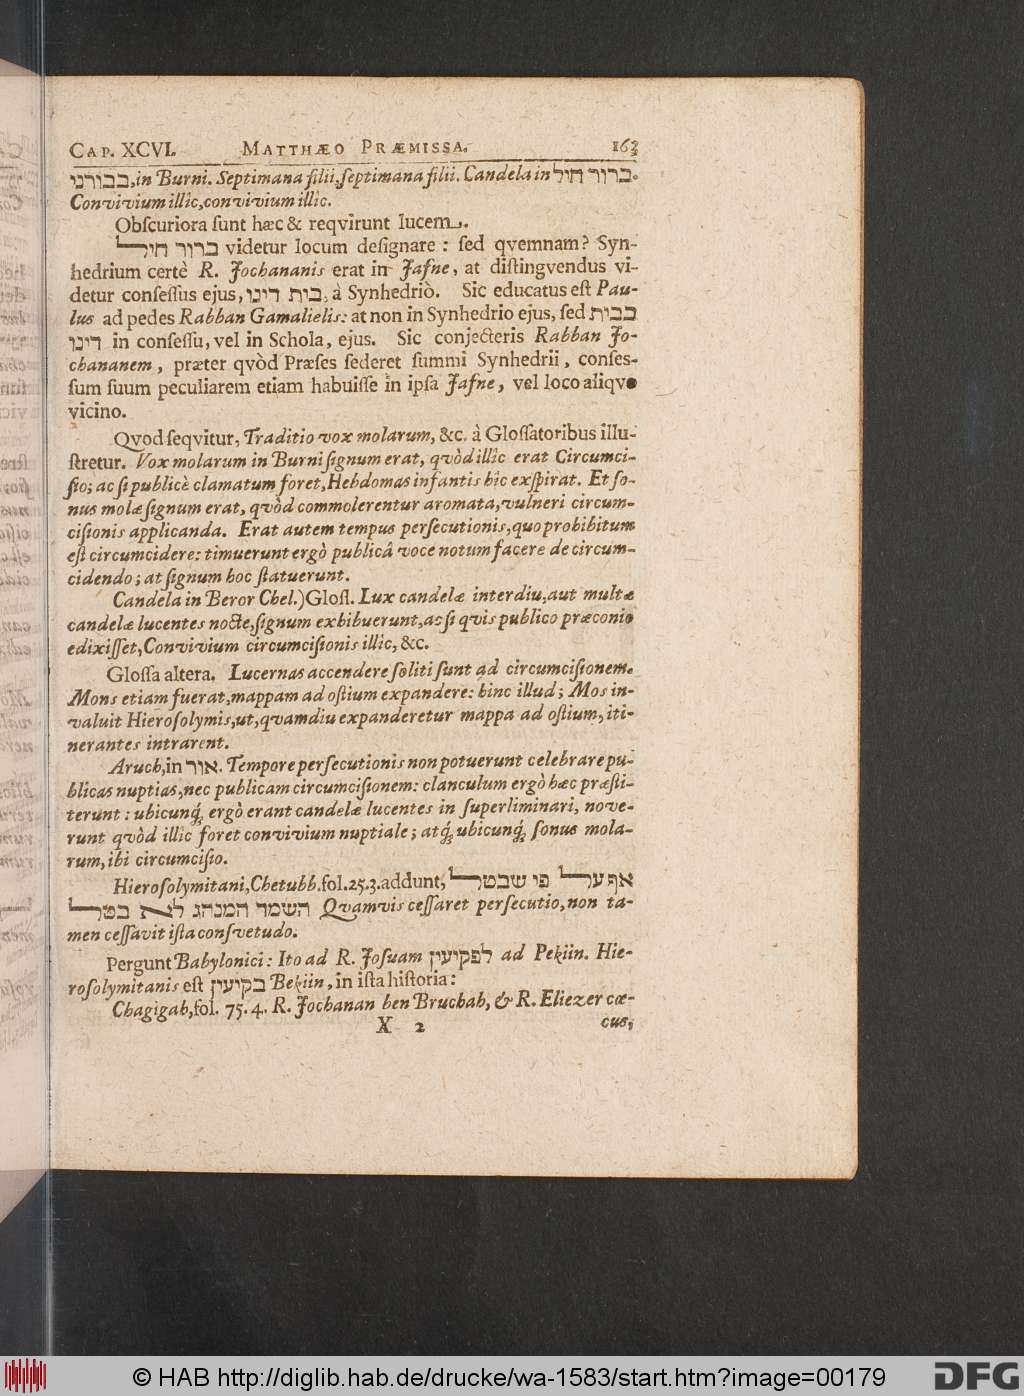 CAP. XCVI. MATTHÆO PRÆMISSA. 163
בבורני, in Burni. Septimana filii, ſeptimana filii. Candela in ברור חיל.
Convivium illîc, convivium illîc.
Obſcuriora ſunt hæc & reqvirunt lucem.
ברור חיל videtur locum deſignare: ſed qvemnam? Syn-
hedrium certè R. Jochananis erat in Jafne, at diſtingvendus vi-
detur conſeſſus ejus, בית דינו, à Synhedriò. Sic educatus eſt Pau-
lus ad pedes Rabban Gamalielis: at non in Synhedrio ejus, ſed בבית
דינו in conſeſſu, vel in Schola, ejus. Sic conjecteris Rabban Jo-
chananem, præter qvòd Præſes ſederet ſummi Synhedrii, conſeſ-
ſum ſuum peculiarem etiam habuiſſe in ipſa Jafne, vel loco aliqvo
vicino.
Qvod ſeqvitur, Traditio vox molarum, &c. à Gloſſatoribus illu-
ſtretur. Vox molarum in Burni ſignum erat, qvòd illîc erat Circumci-
ſio; ac ſi publicè clamatum foret, Hebdomas infantis hîc exſpirat. Et ſo-
nus molæ ſignum erat, qvòd commolerentur aromata, vulneri circum-
ciſionis applicanda. Erat autem tempus perſecutionis, quo prohibitum
eſt circumcidere: timuerunt ergò publicâ voce notum facere de circum-
cidendo; at ſignum hoc ſtatuerunt.
Candela in Beror Chel.) Gloſſ. Lux candelæ interdiu, aut multæ
candelæ lucentes nocte, ſignum exhibuerunt, ac ſi qvis publico præconio
edixiſſet, Convivium circumciſionis illic, &c.
Gloſſa altera. Lucernas accendere ſoliti ſunt ad circumciſionem.
Mons etiam fuerat, mappam ad oſtium expandere: hinc illud; Mos in-
valuit Hieroſolymis, ut, qvamdiu expanderetur mappa ad oſtium, iti-
nerantes intrarent.
Aruch, in אור. Tempore perſecutionis non potuerunt celebrare pu-
blicas nuptias, nec publicam circumciſionem: clanculum ergò hæc præſti-
terunt: ubicunq́; ergò erant candelæ lucentes in ſuperliminari, nove-
runt qvòd illîc foret convivium nuptiale; atq́; ubicunq́; ſonus mola-
rum, ibi circumciſio.
Hieroſolymitani, Chetubb. fol. 25. 3. addunt, אף על פי שבטל
השמד המנהג לא בטל Qvamvis ceſſaret perſecutio, non ta-
men ceſſavit iſta conſvetudo.
Pergunt Babylonici: Ito ad R. Joſuam לפקיעין ad Pekiin. Hie-
roſolymitanis eſt בקיעין Bekiin, in iſta hiſtoria:
Chagigah, fol. 75. 4. R. Jochanan ben Bruchah, & R. Eliezer cæ-
X 2 cus,
© HAB http://diglib.hab.de/drucke/wa-1583/start.htm?image=00179
DFG